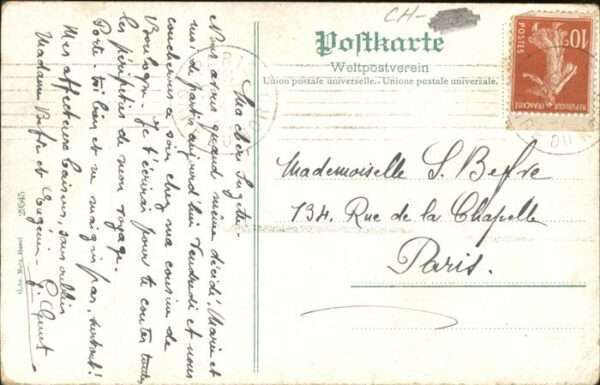 CH-
Postkarte
Weltpostverein
Union postale universelle.-Unione postale universale.
10c
POSTES
REPUBLIQUE FRANÇAISE
Mademoiselle S. Beffre
134. Rue de la Chapelle
Paris.
Ma chère Suzette.
Nous avons quand même décidé, Marie et
moi de partir aujourd'hui Vendredi et nous
coucherons ce soir chez ma cousine de
Boulogne. Je t'écrirai pour te conter toutes
les péripéties de mon voyage.
Porte-toi bien et ne maigris pas, surtout!
Mes affectueux baisers, sans oublier
Madame Beffre et Eugénie. G.